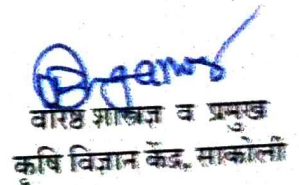 वरिष्ठ शास्त्रज्ञ व प्रमुख
कृषि विज्ञान केंद्र, साकोली